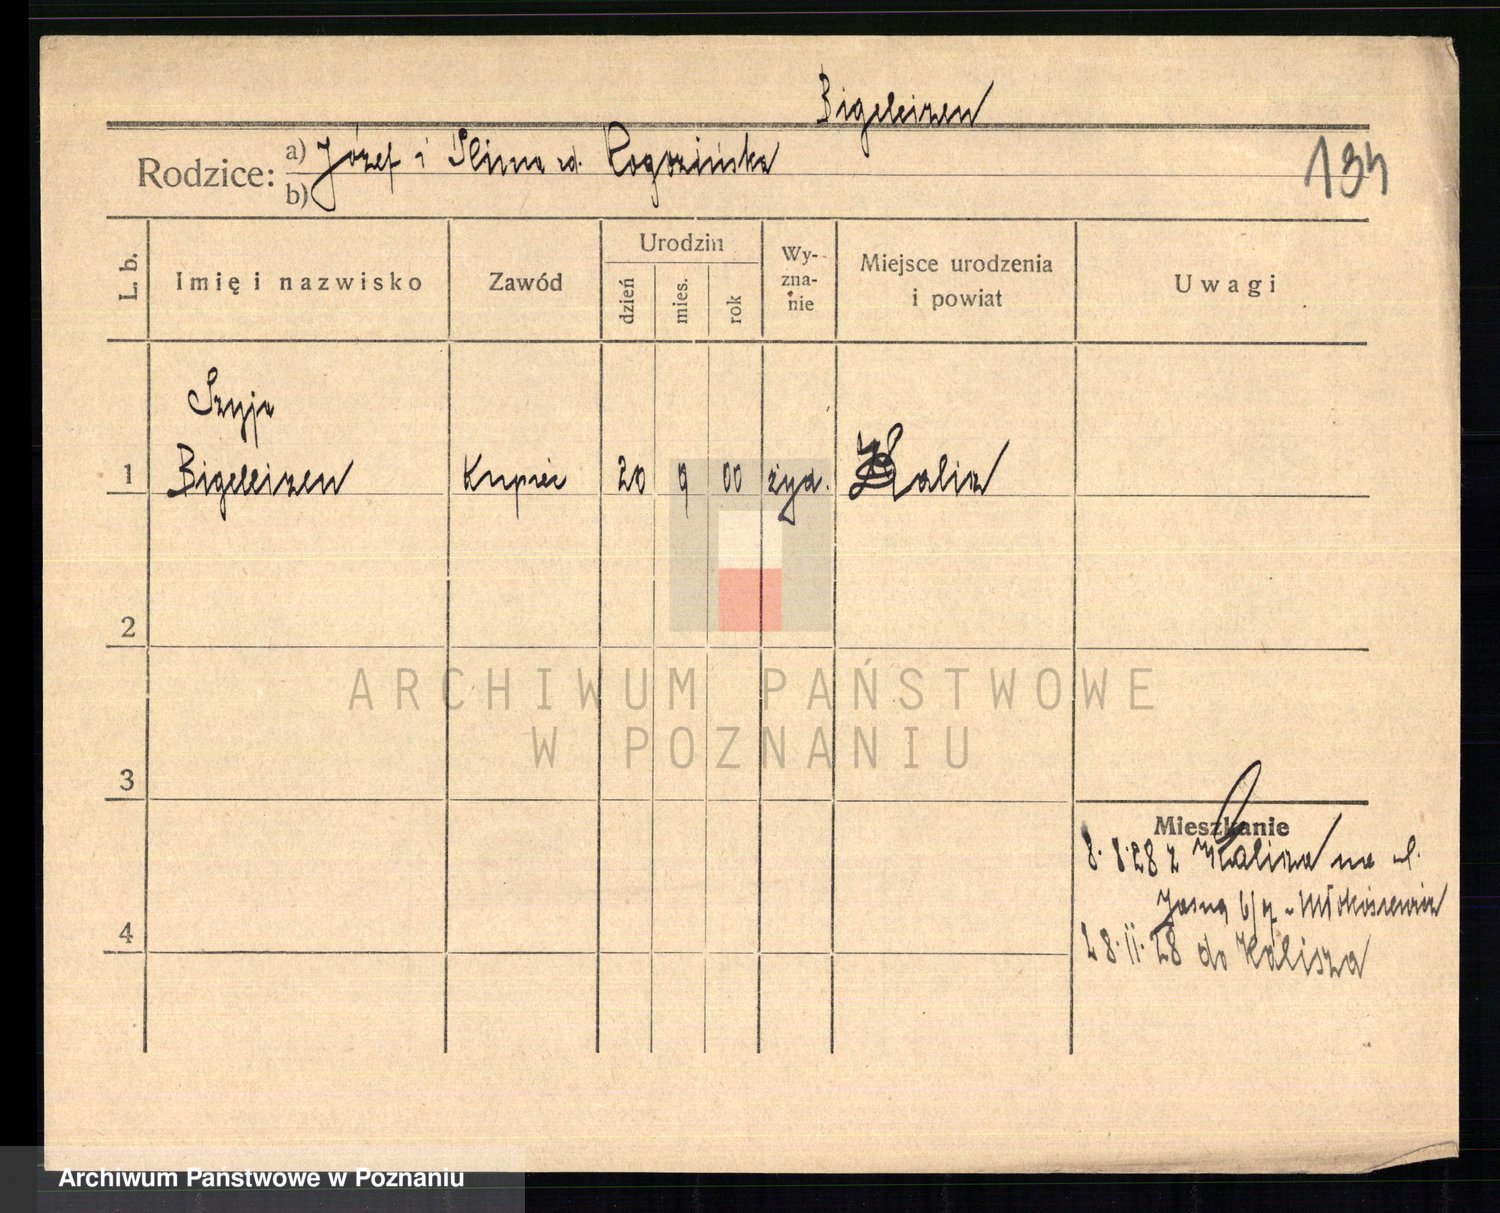 Bigeleizen
Rodzice: a) Józef i Slima ur. Rogozińska
b)
134
L. b.
Imię i nazwisko
Zawód
Urodzin
dzień
mies.
rok
Wy-
zna-
nie
Miejsce urodzenia
i powiat
Uwagi
Szyja
1 Bigeleizen Kupiec 20 9 00 żyd. Kalisz
2
ARCHIWUM PAŃSTWOWE
W POZNANIU
3
Mieszkanie
8.8.28 z Kalisza na ul.
Jasna 6/7
4
28.11.28 do Kalisza
Archiwum Państwowe w Poznaniu